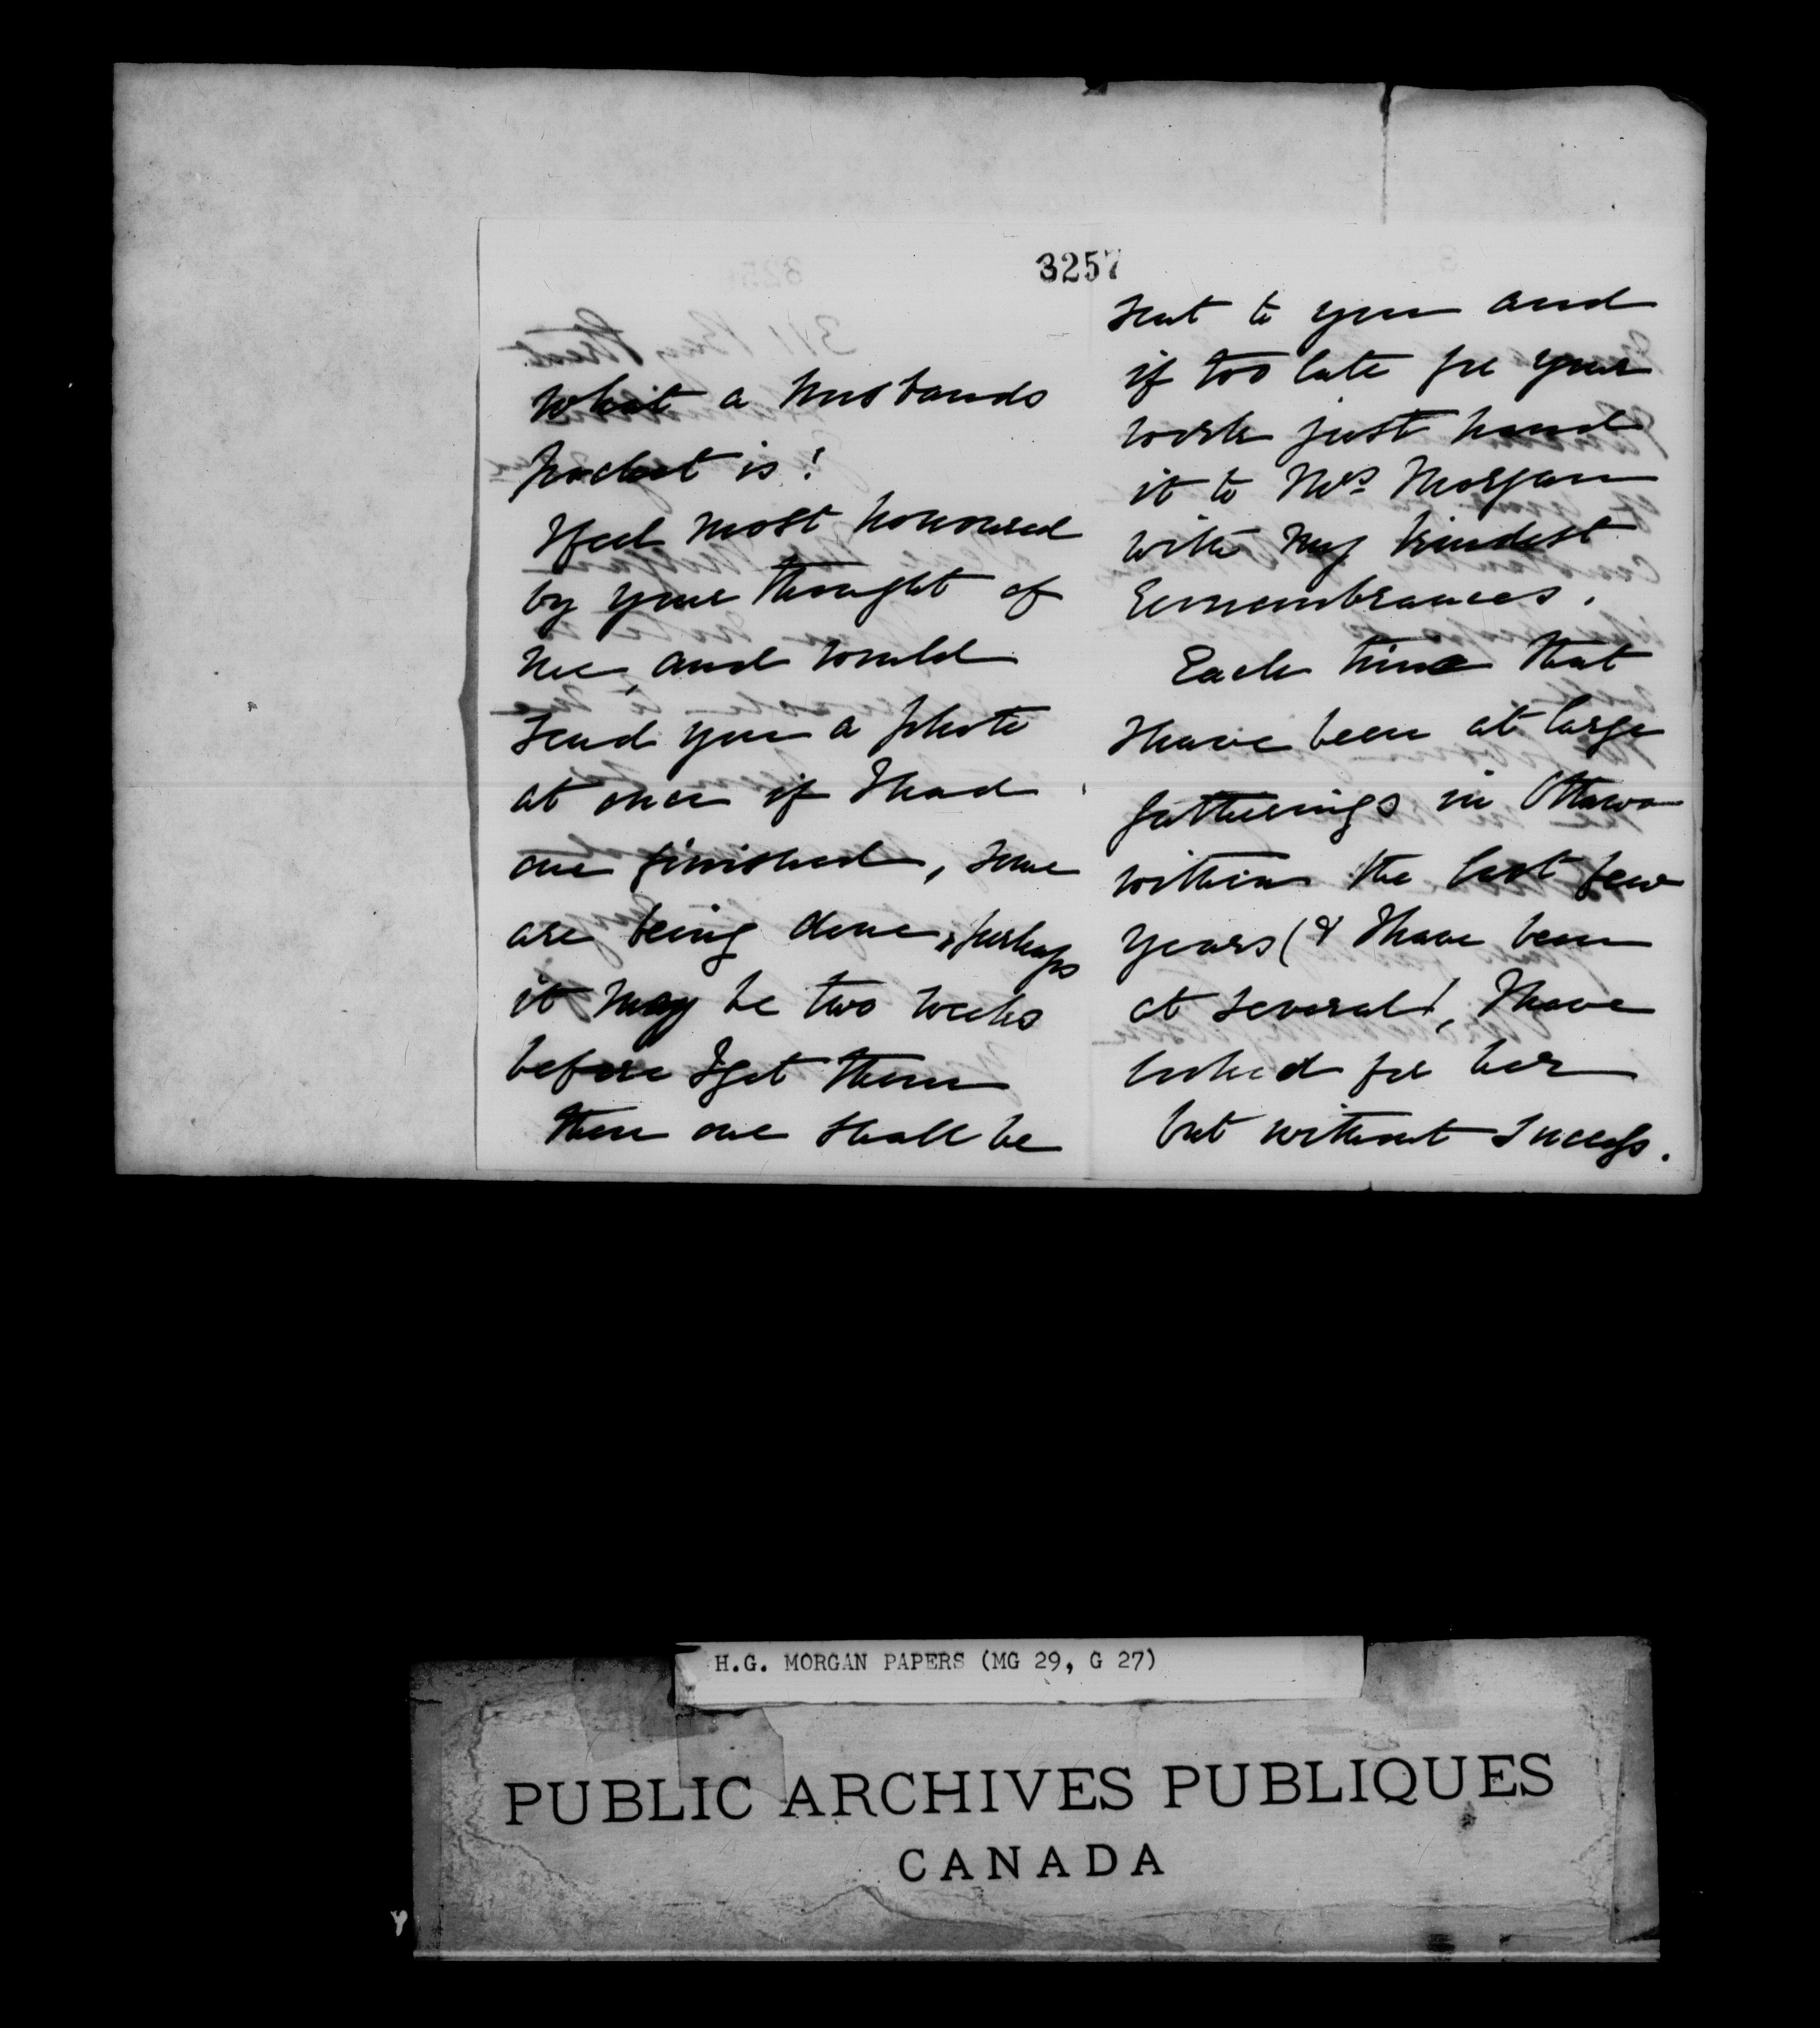 3257
what a husbands
pocket is!
I feel most honoured
by your thought of
me, and would
send you a photo
at once if I had
one finished, some
are being done, perhaps
it may be two weeks
before I get them
then one shall be
sent to you and
if too late for your
work just hand
it to Mrs Morgan
with my kindest
remembrances.
Each time that
I have been at large
gatherings in Ottawa
within the last few
years (& I have been
at several), I have
looked for her
but without success.
H.G. MORGAN PAPERS (MG 29, G 27)
PUBLIC ARCHIVES PUBLIQUES
CANADA